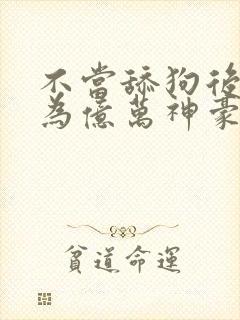 不當舔狗後
為億萬神豪
貧道命運